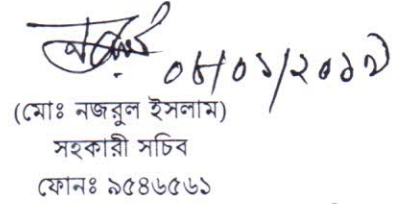 ০৮/০১/২০১৭
(মোঃ নজরুল ইসলাম)
সহকারী সচিব
ফোনঃ ৯৫৪৬৫৬১